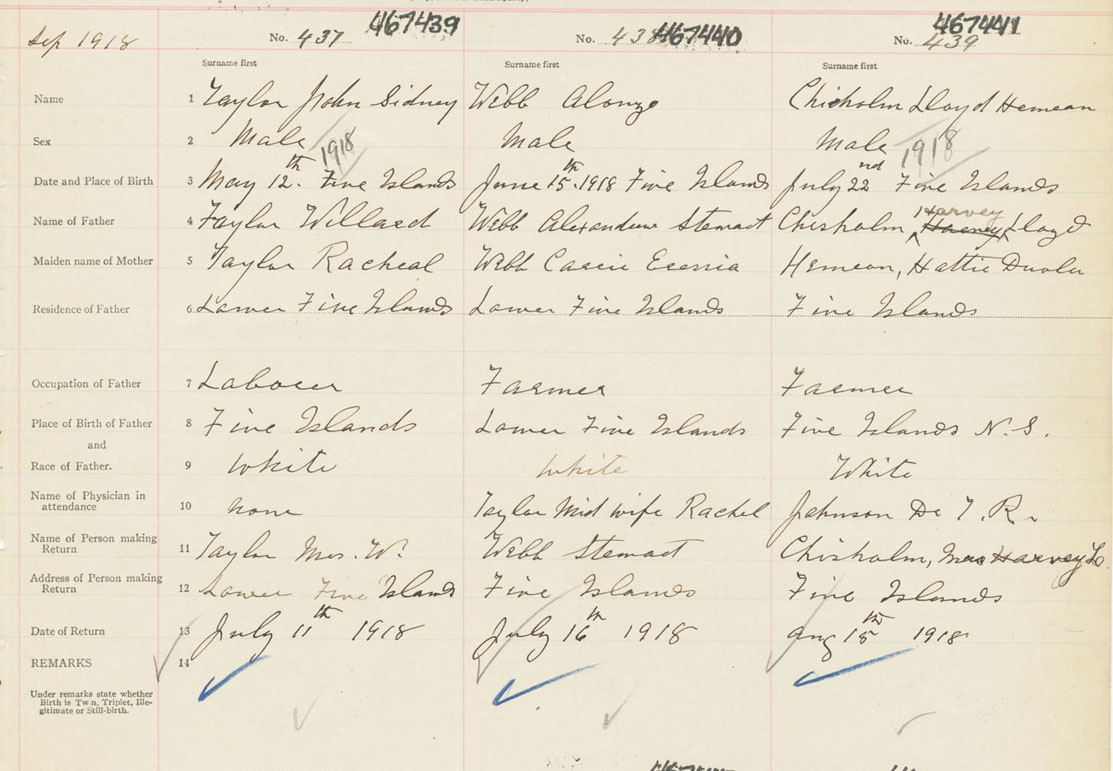 Sep 1918
No. 437 467439
No. 438 467440
467441
No. 439
Surname first Surname first Surname first
Name 1 Taylor John Sidney Webb Alonzo Chisholm Lloyd Hemeon
Sex 2 Male Male Male
1918 1918
Date and Place of Birth 3 May 12th. Five Islands June 15th. 1918 Five Islands July 22nd Five Islands
Harvey
Name of Father 4 Taylor Willard Webb Alexander Stewart Chisholm, Harvey Lloyd
Maiden name of Mother 5 Taylor Racheal Webb Cassie Hemeon, Hattie
Residence of Father 6 Lower Five Islands Lower Five Islands Five Islands
Occupation of Father 7 Laborer Farmer Farmer
Place of Birth of Father 8 Five Islands Lower Five Islands Five Islands N.S.
and
Race of Father. 9 White White White
Name of Physician in
attendance 10 none Taylor Mid wife Rachel Johnson Dr T. R.
Name of Person making
Return 11 Taylor Mrs. W. Webb Stewart Chisholm, Mrs Harvey L.
Address of Person making
Return 12 Lower Five Islands Five Islands Five Islands
Date of Return 13 July 11th 1918 July 16th 1918 Aug 15th 1918
REMARKS 14
Under remarks state whether
Birth is Twin, Triplet, Ille-
gitimate or Still-birth.